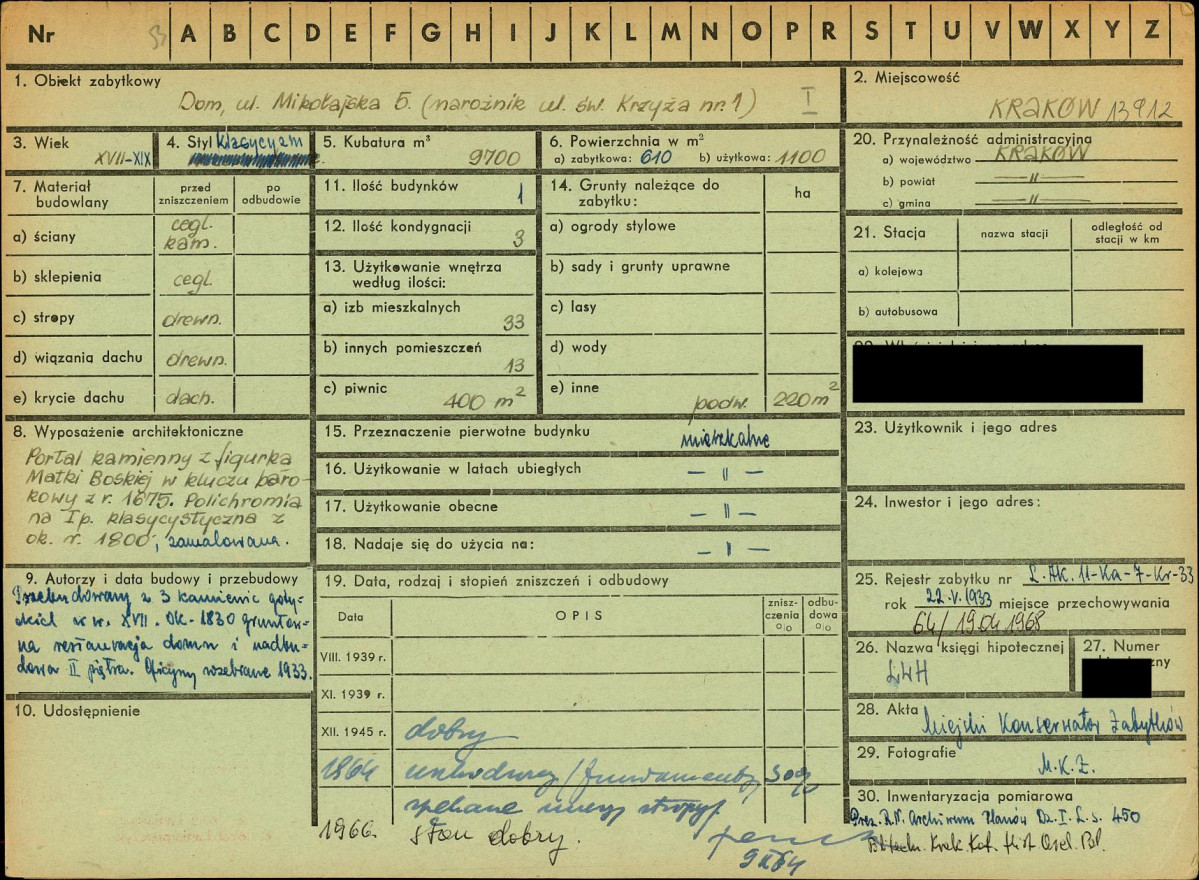 Nr 93 A B C D E F G H I J K L M N O P R S T U V W X Y Z
1. Obiekt zabytkowy
Dom, ul. Mikołajska 5. (narożnik ul. św. Krzyża nr. 1) I
2. Miejscowość
KRAKÓW 13912
3. Wiek
XVII-XIX
4. Styl klasycyzm
5. Kubatura m³
9700
6. Powierzchnia w m²
a) zabytkowa: 610 b) użytkowa: 1100
20. Przynależność administracyjna
a) województwo KRAKÓW
b) powiat -"-
c) gmina -"-
7. Materiał budowlany
przed zniszczeniem
po odbudowie
a) ściany cegl. kam.
b) sklepienia cegl.
c) stropy drewn.
d) wiązania dachu drewn.
e) krycie dachu dach.
11. Ilość budynków 1
12. Ilość kondygnacji 3
13. Użytkowanie wnętrza według ilości:
a) izb mieszkalnych 33
b) innych pomieszczeń 13
c) piwnic 400 m²
14. Grunty należące do zabytku: ha
a) ogrody stylowe
b) sady i grunty uprawne
c) lasy
d) wody
e) inne podw. 220 m²
21. Stacja nazwa stacji odległość od stacji w km
a) kolejowa
b) autobusowa
8. Wyposażenie architektoniczne
Portal kamienny z figurka
Matki Boskiej w kluczu baro-
kowy z r. 1675. Polichromia
na I p. klasycystyczna z
ok. r. 1800, zamalowana.
15. Przeznaczenie pierwotne budynku mieszkalne
16. Użytkowanie w latach ubiegłych - " -
17. Użytkowanie obecne - " -
18. Nadaje się do użycia na: - " -
23. Użytkownik i jego adres
24. Inwestor i jego adres:
9. Autorzy i data budowy i przebudowy
Przebudowany z 3 kamienic goty-
ckich w w. XVII. Ok. 1830 gruntow-
na restauracja domu i nadbu-
dowa II piętra. Oficyny rozebrane 1933.
10. Udostępnienie
19. Data, rodzaj i stopień zniszczeń i odbudowy
Data OPIS znisz-czenia % odbu-dowa %
VIII. 1939 r.
XI. 1939 r.
XII. 1945 r. dobry
1964 fundamenty 30%
spękane stropy
1966. stan dobry.
25. Rejestr zabytku nr L. AK. 11-Ka-7-Kr-33
rok 22.V.1933 miejsce przechowywania
64/19.04.1968
26. Nazwa księgi hipotecznej
LWH
27. Numer
28. Akta Miejski Konserwator Zabytków
29. Fotografie
M.K.Z.
30. Inwentaryzacja pomiarowa
Prez. R.N. Archiwum Planów Dz. I. L. s. 450